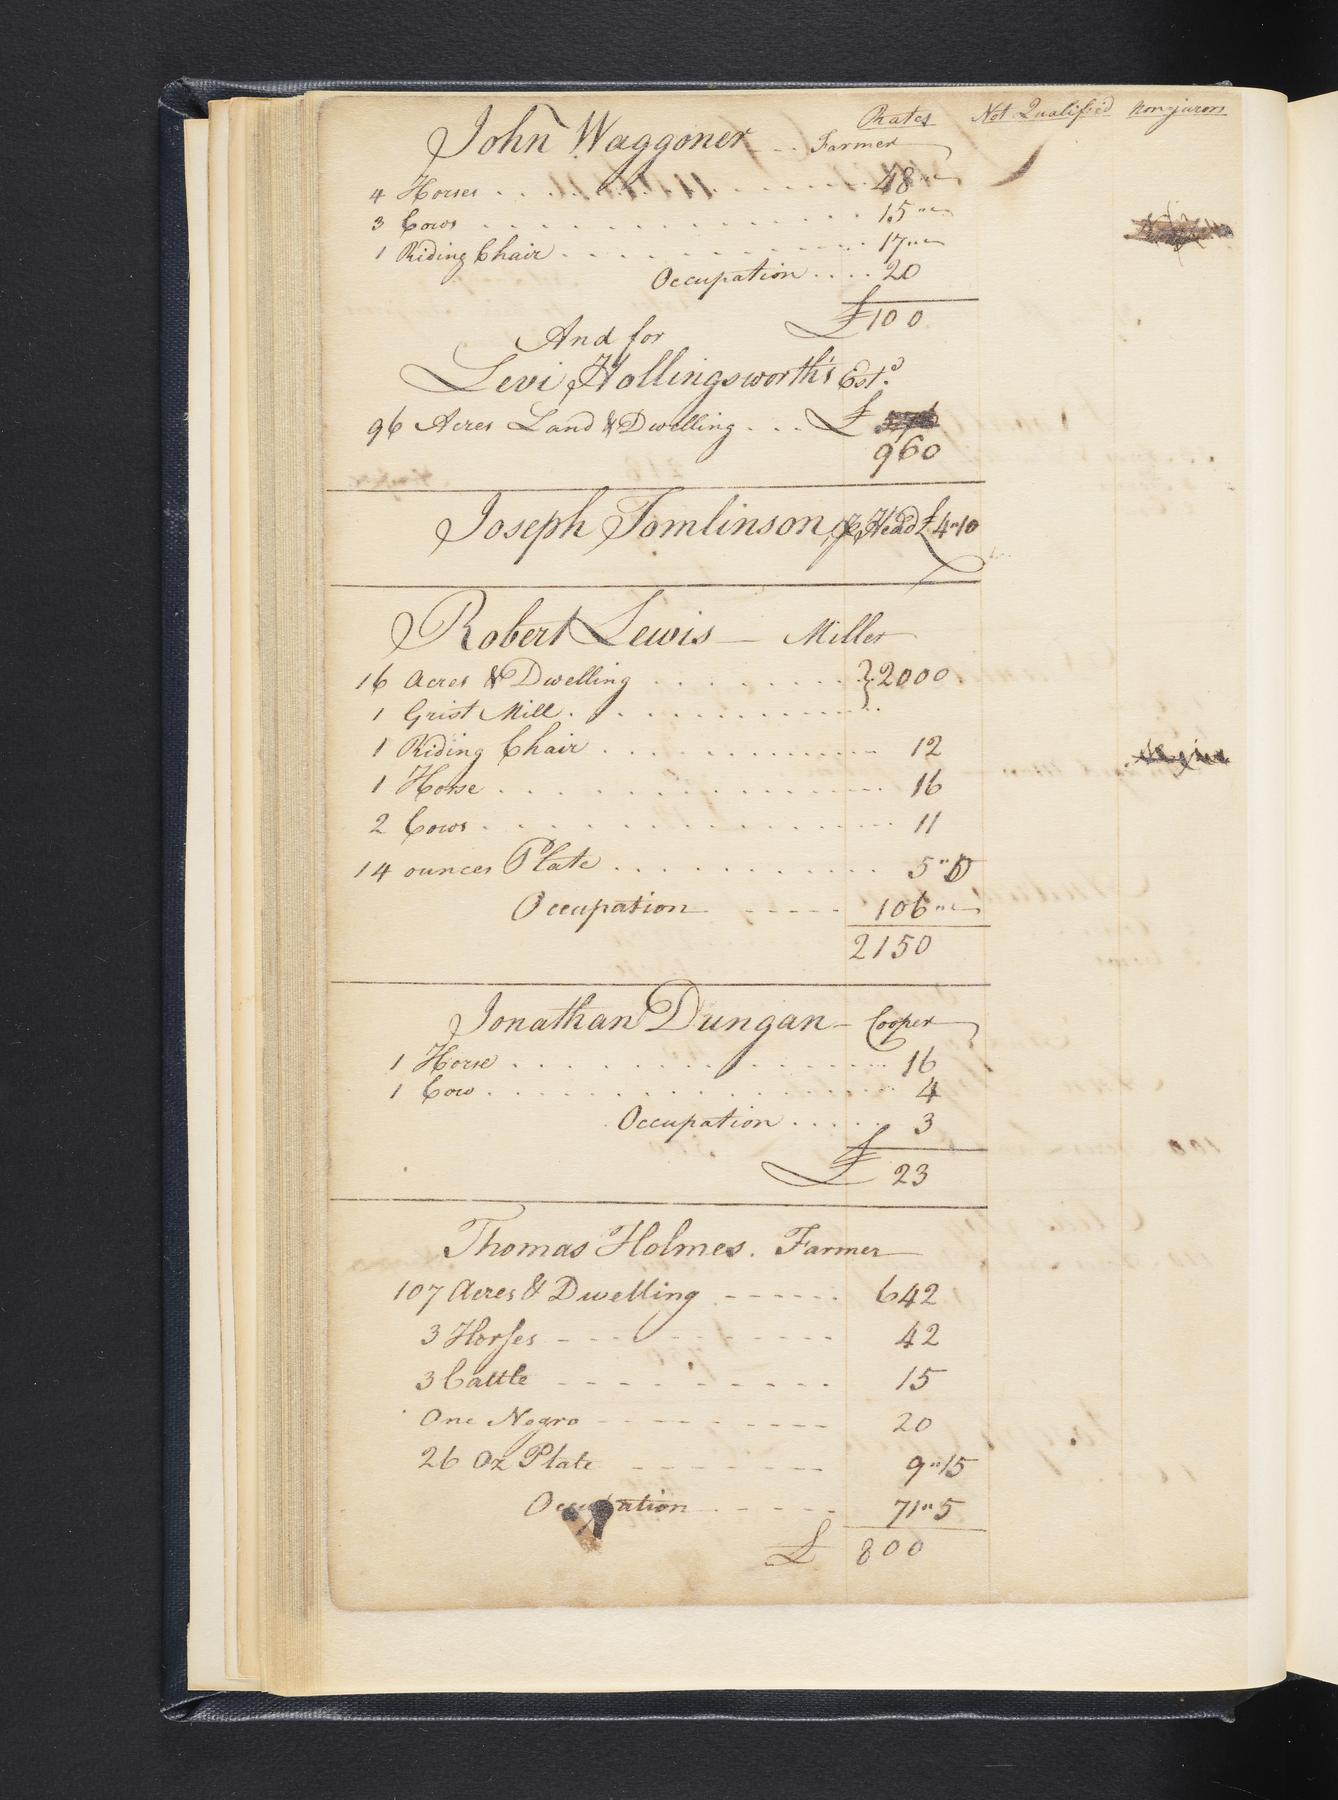 Rates Not Qualified Nonjurors
John Waggoner - - Farmer
4 Horses . . . 48 " "
3 Cows . . . 15 " "
1 Riding Chair . . . 17 " "
Occupation . . . . 20
£100
And for
Levi Hollingsworth's Est.ᵈ
96 Acres Land & Dwelling . . . £
960
Joseph Tomlinson, ⅌ Head £4"10
Robert Lewis — Miller
16 Acres & Dwelling . . . } 2000
1 Grist Mill . . .
1 Riding Chair . . . 12
1 Horse . . . 16
2 Cows . . . 11
14 ounces Plate . . . 5"5
Occupation - - - - - 106 " "
2150
Jonathan Dungan - Cooper
1 Horse . . . 16
1 Cow . . . 4
Occupation . . . . . 3
£ 23
Thomas Holmes. Farmer
107 Acres & Dwelling - - - - - - 642
3 Horses - - - 42
3 Cattle - - - 15
One Negro - - - 20
26 Oz Plate - - - 9"15
Occupation - - - - - 71"5
£ 800